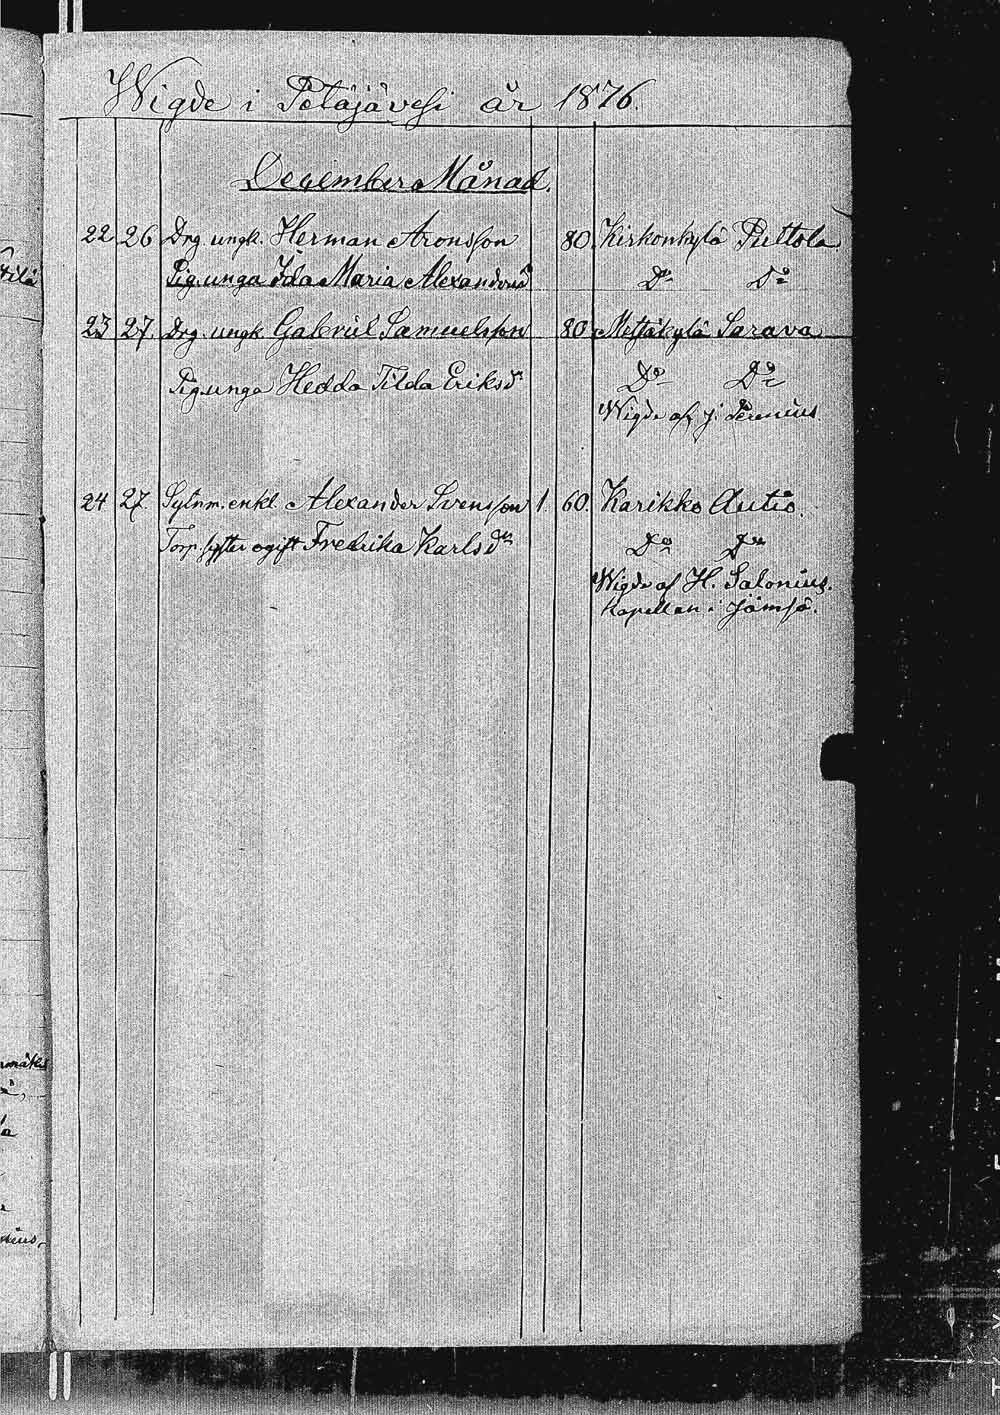 Wigde i Petäjävesi år 1876.
December Månad.
22 26 Drg. ungk. Herman Aronsson 80. Kirkonkylä Puttola
Pig. unga Ida Maria Alexandersd Do Do
23 27. Drg. ungk. Gabriel Samuelsson 80 Metsäkylä Sarava
Pig. unga Hedda Tilda Eriksdr Do Do
Wigde af J. Perenius.
24 27. Sytnm. enkl. Alexander Svensson 1. 60. Karikko Autio.
Torp. syster ogift Fredrika Karlsdr Do Do
Wigde af H. Salonius.
kapellan i Jämsä.